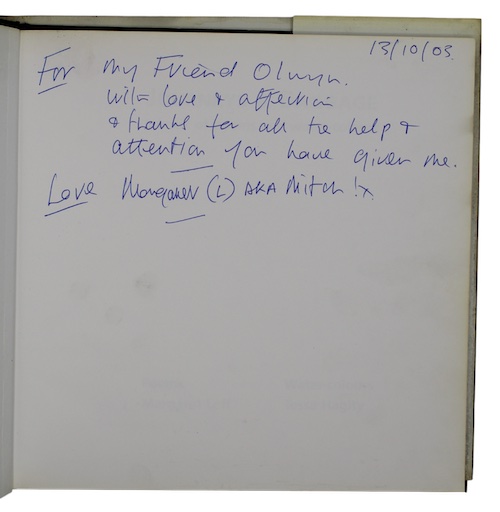 13/10/03.
For my Friend Olwyn.
with love & affection
& thanks for all the help &
attention you have given me.
Love (L) AKA Mitch !x